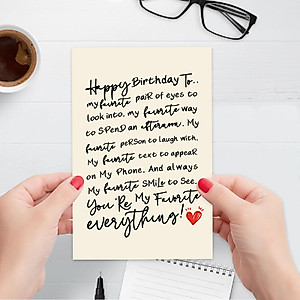 Happy Birthday To..
my favorite pair of eyes to
look into, my favorite way
to SPEND an afternoon. My
favorite peRSon to laugh with.
My favorite text to appear
on My Phone. And always
My favorite SMiLe to See.
You'Re My Favorite
everything!